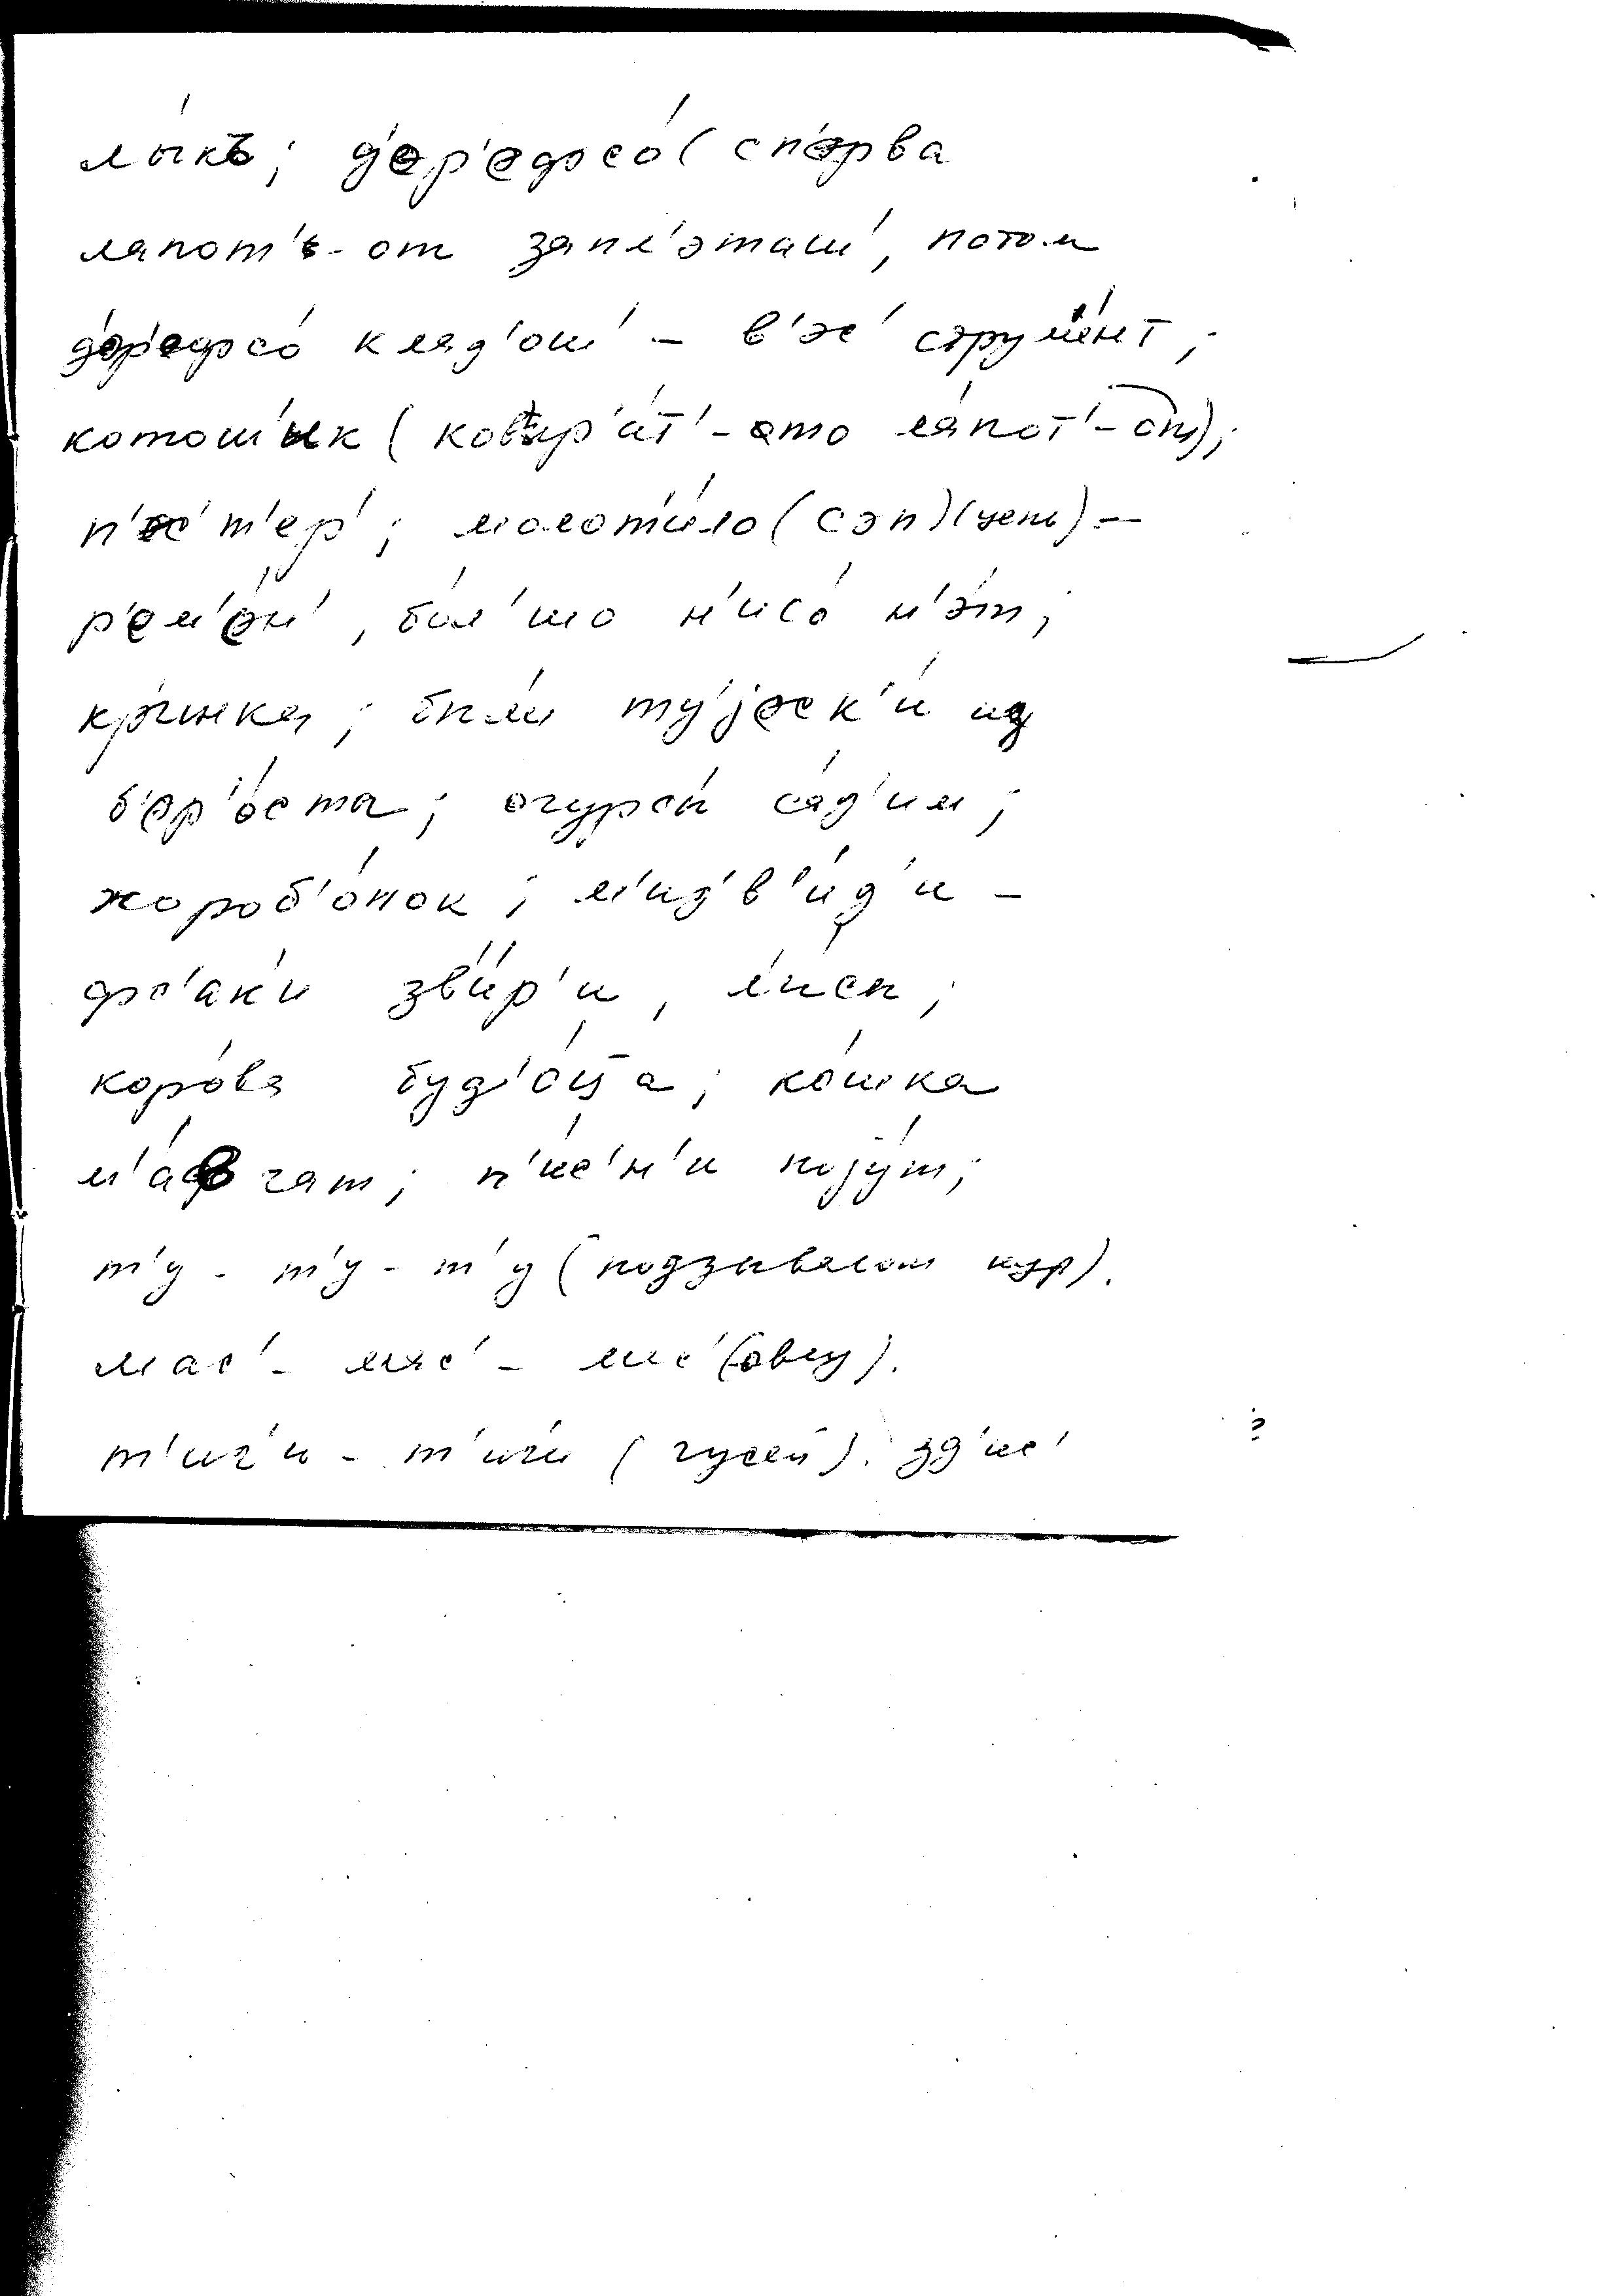 лы́къ; д'ер'офсо́ (сп'эрва
лапот'ь-от запл'эташ', потом
д'ер'офсо́ клад'ош' – в'эс' струм'э́нт;
котош'ык (ковыр'а́т'-ето ла́пот'-от);
п'ес'т'ер'; молот'и́ло (сэп) (цепь) –
р'ем'э́н', бо́л'шо н'исо́ н'э́т;
кри́нка; бы́ли ту́јеск'и из
б'ер'о́ста; огурсы́ са́д'им;
жороб'о́нок; м'ид'в'и́д'и –
фс'аки зв'и́р'и, ли́сы;
коро́ва буд'о́цца; ко́шка
м'а́вгат; п'и́с'н'и пају́т;
т'у - т'у - т'у (подзывают кур).
мас' - мас' - мас' (овец).
т'иг'и - т'иги (гусей). зд'ис'